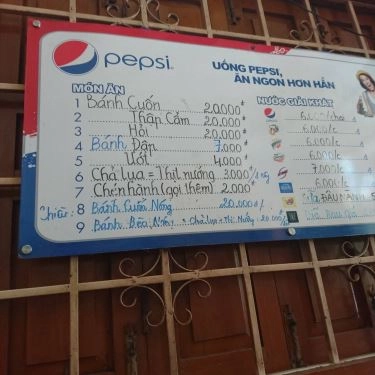 pepsi
UỐNG PEPSI,
ĂN NGON HƠN HẲN
MÓN ĂN
1 Bánh Cuốn 20.000đ
2 Thập Cẩm 20.000đ
3 Hỏi 20.000đ
4 Bánh Đập 7.000đ
5 Ướt 4.000
6 Chả lụa = Thịt nướng 3.000/
7 Chén hành (gọi thêm) 2.000đ
8 Bánh Cuốn Nóng 20.000đ/
9 Bánh Bèo Chả lụa 20.000
NƯỚC GIẢI KHÁT
6.000/chai
6.000/c
6.000/c
6.000/c
7.000/c
6.000/c
ĐẬU